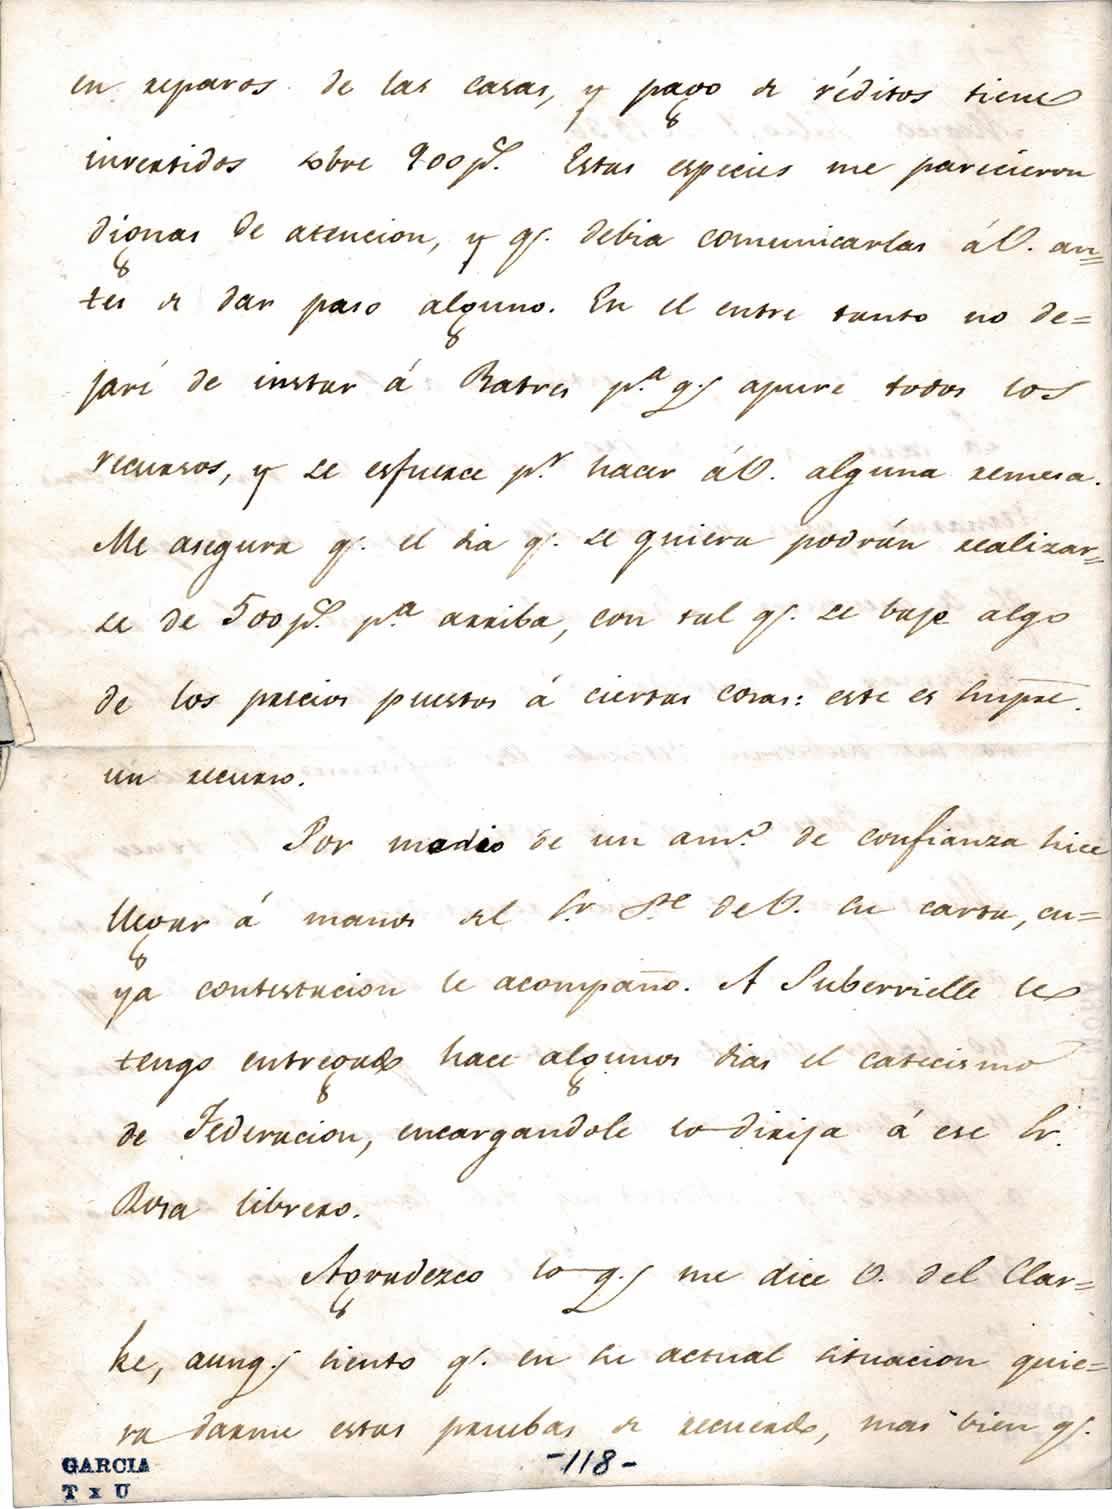 en reparos de las casas, y pago de réditos tiene
invertidos sobre 900 p.s Estas especies me parecieron
dignas de atencion, y q.e debia comunicarlas á V. an=
tes de dar paso alguno. En el entre tanto no de=
jaré de instar á Batres p.a q.e apure todos los
recursos, y se esfuerce p.r hacer á V. alguna remesa.
Me asegura q.e el dia q.e se quiera podrán realizar=
se de 500 p.s p.a arriba, con tal q.e se baje algo
de los precios puestos á ciertas cosas: este es simpre.
un recurso.
Por medio de un am.o de confianza hice
llegar á manos del S.r P.e de V. su carta, cu=
ya contestacion le acompaño. A Subervielle le
tengo entregado hace algunos dias el catecismo
de Federacion, encargandole lo dirija á ese Sr.
Rosa librero.
Agradezco lo q.e me dice V. del Clar=
ke, aunq.e siento q.e en su actual situacion quie=
ra darme estas pruebas de recuerdo, mas bien q.e
-118-
GARCIA
T x U